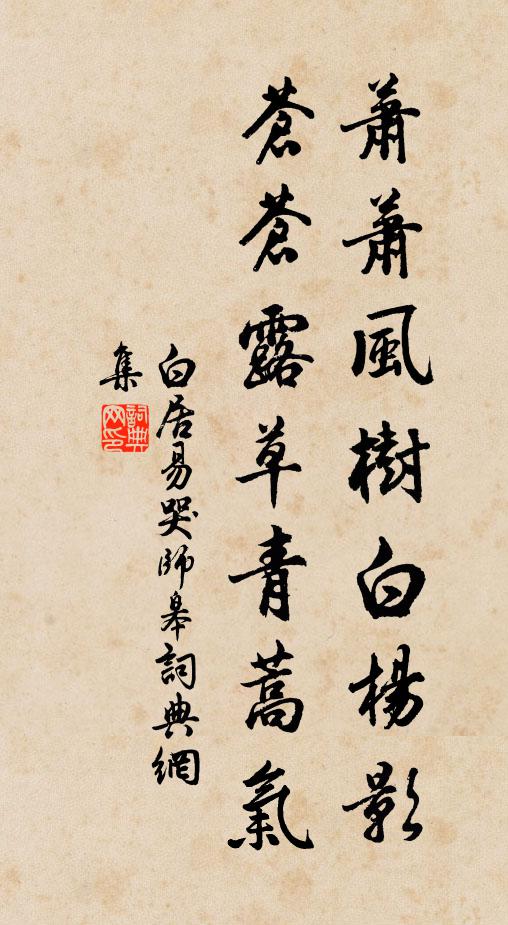 蕭蕭風樹白楊影
蒼蒼露草青蒿氣
白居易哭師皋詞典網
集
詞典网印